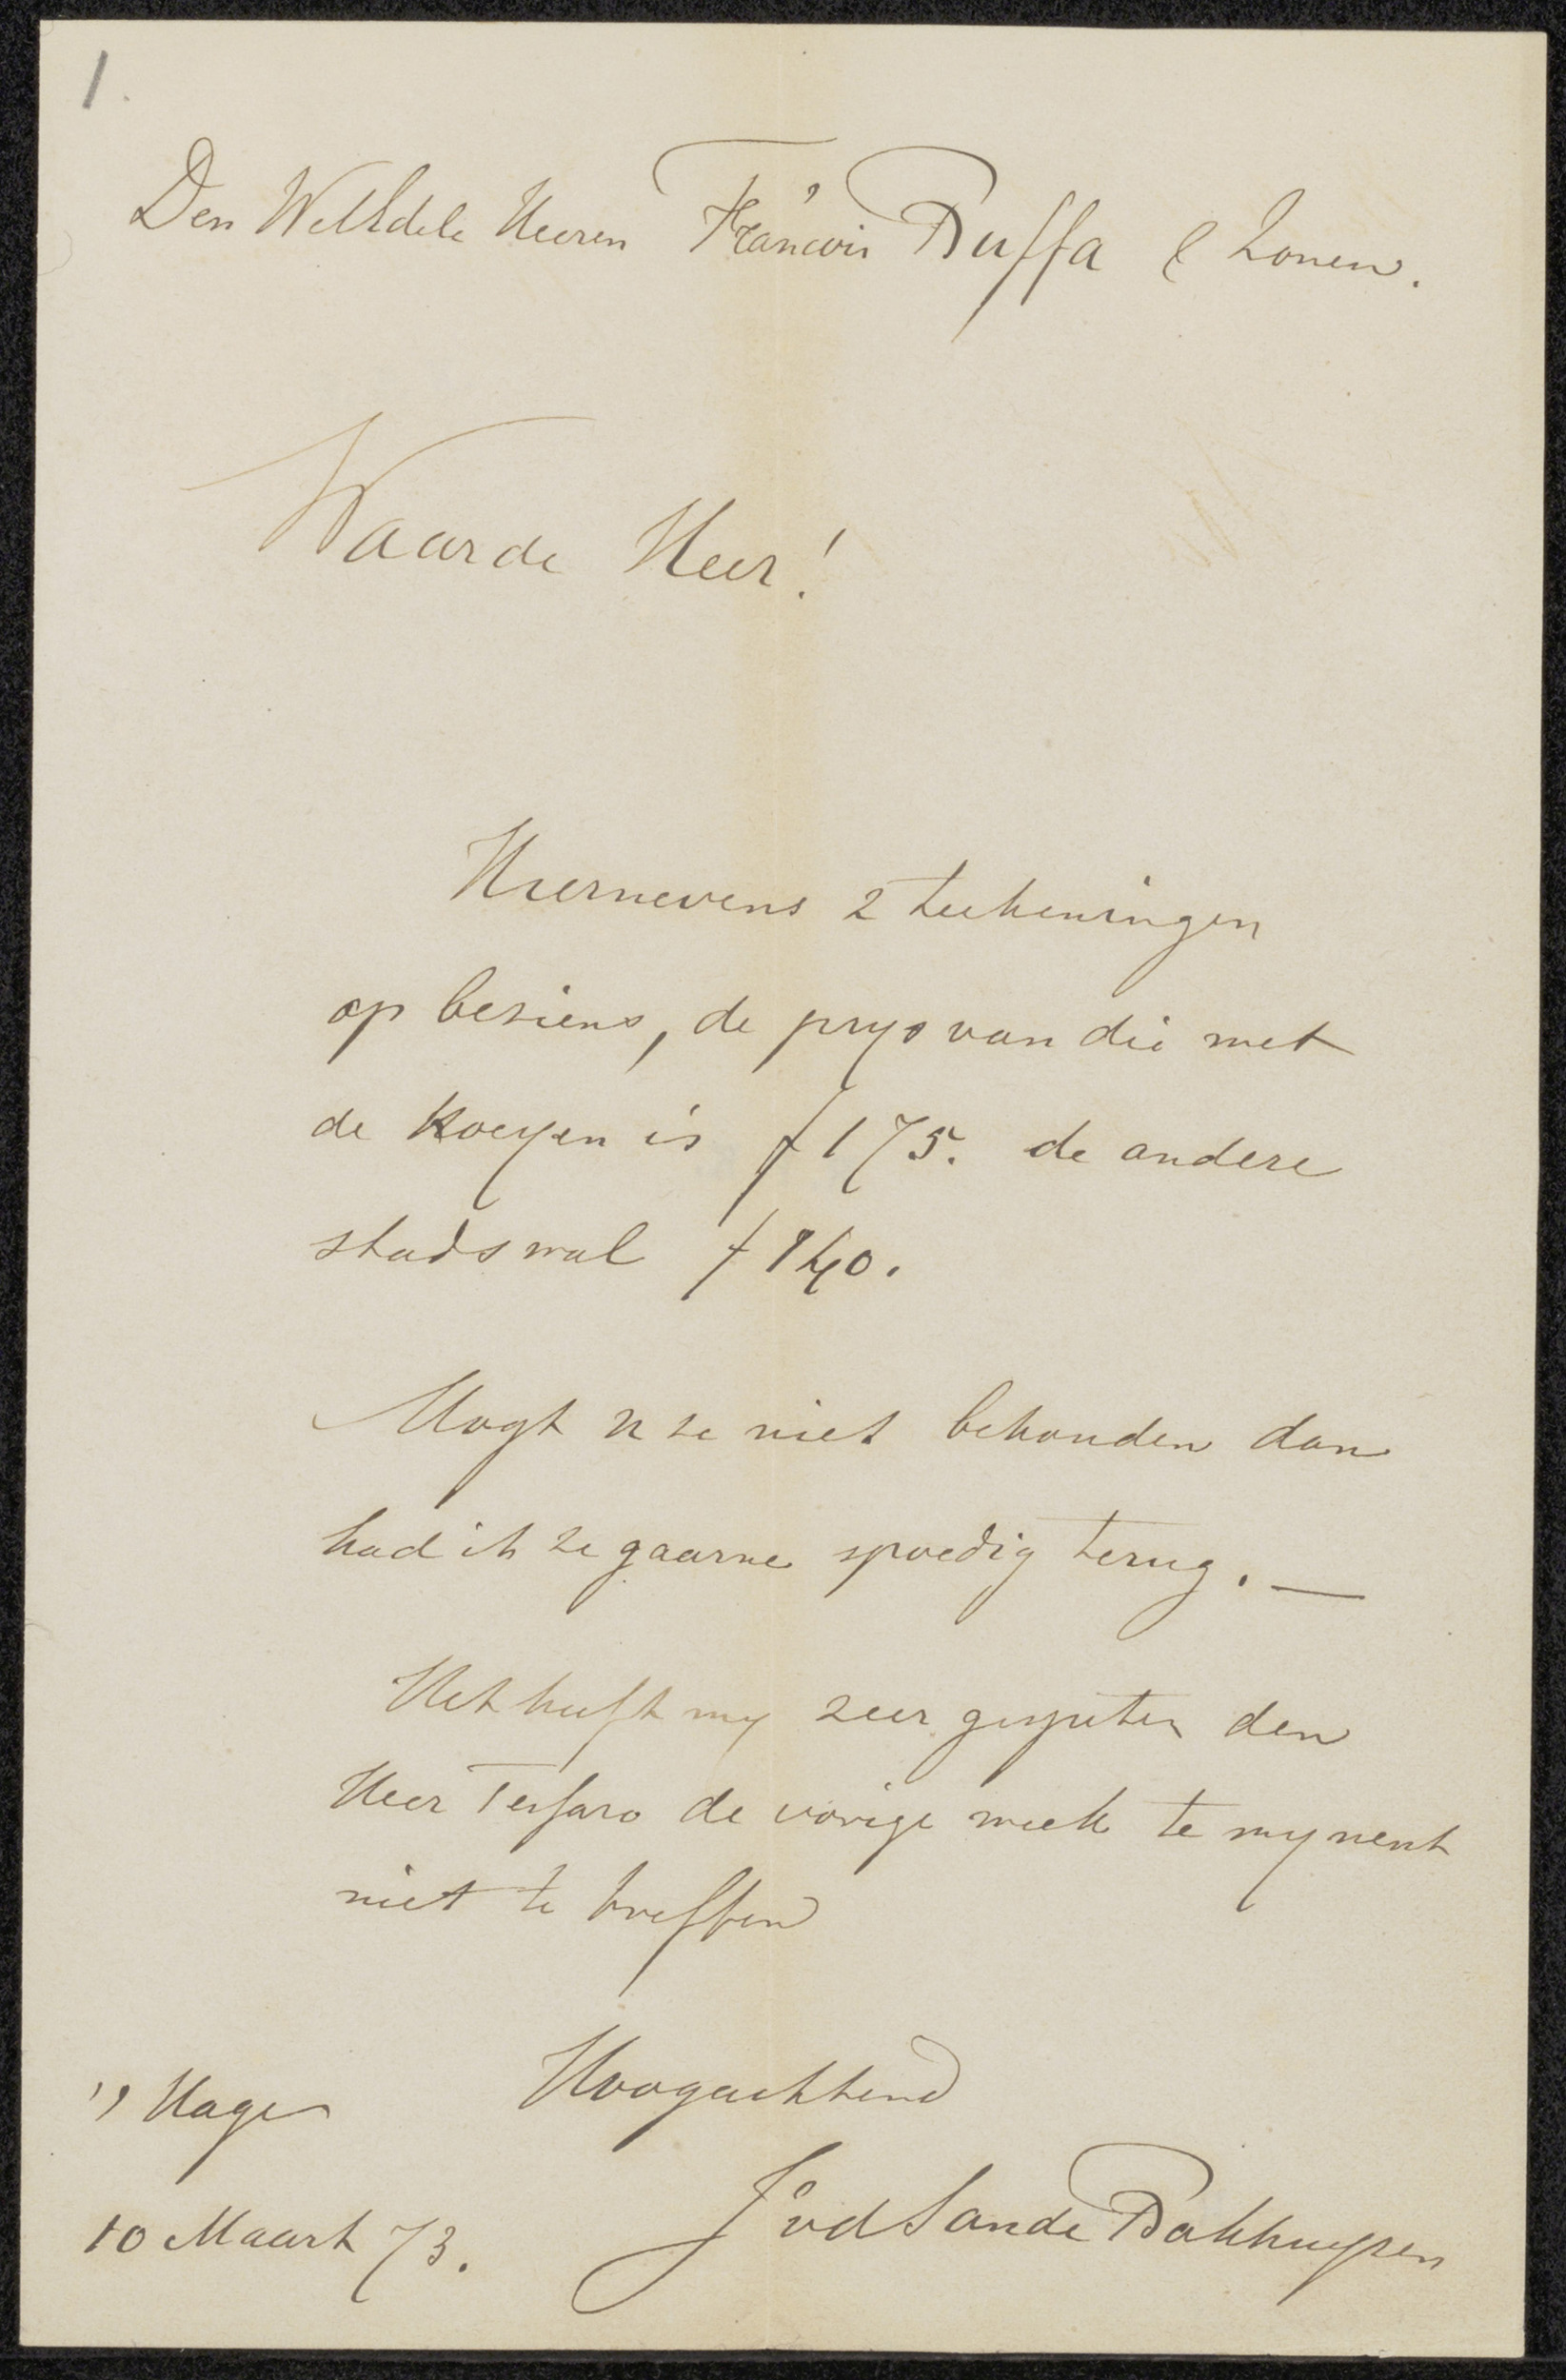 1.
Den WelEdele Heeren François Buffa & Zonen.
Waarde Heer!
Hiernevens 2 teekeningen
op beziens, de prys van die met
de koeyen is f 175. de andere
stadswal f 140.
Mogt u ze niet behouden dan
had ik ze gaarne spoedig terug. —
Het heeft my zeer gespeten den
Heer Tersaro de vorige week te mynent
niet te treffen
Hoogachtend
's Hage
10 Maart 73.
J vd Sande Bakhuyzen